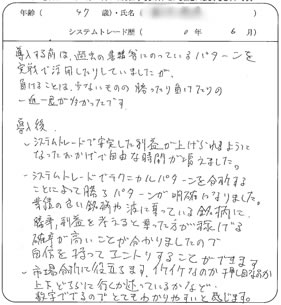 年齢( 47 )歳・氏名(
システムトレード歴 ( 0 年 6 月)
導入する前は、過去の書籍等にのっているパターンを
実戦で活用したりしていましたが、
負けることは、少ないものの 勝ったり負けたりの
一進一退が多かったです。
導入後、
・システムトレードで安定した利益が上げられるように
なったおかげで自由な時間が増えました。
・システムトレードでテクニカルパターンを分析する
ことによって勝てるパターンが明確になりました。
業績の良い銘柄や波に乗っている銘柄に、
勝率、利益を考えると乗った方が稼げる
確率が高いことが分かりましたので
自信を持ってエントリすることができます
・市場分析に役立ちます、イケイケなのか押し目なのか
上下どちらに行くか迷っているかなど、
数字ででるのでとてもわかりやすいと感じます。